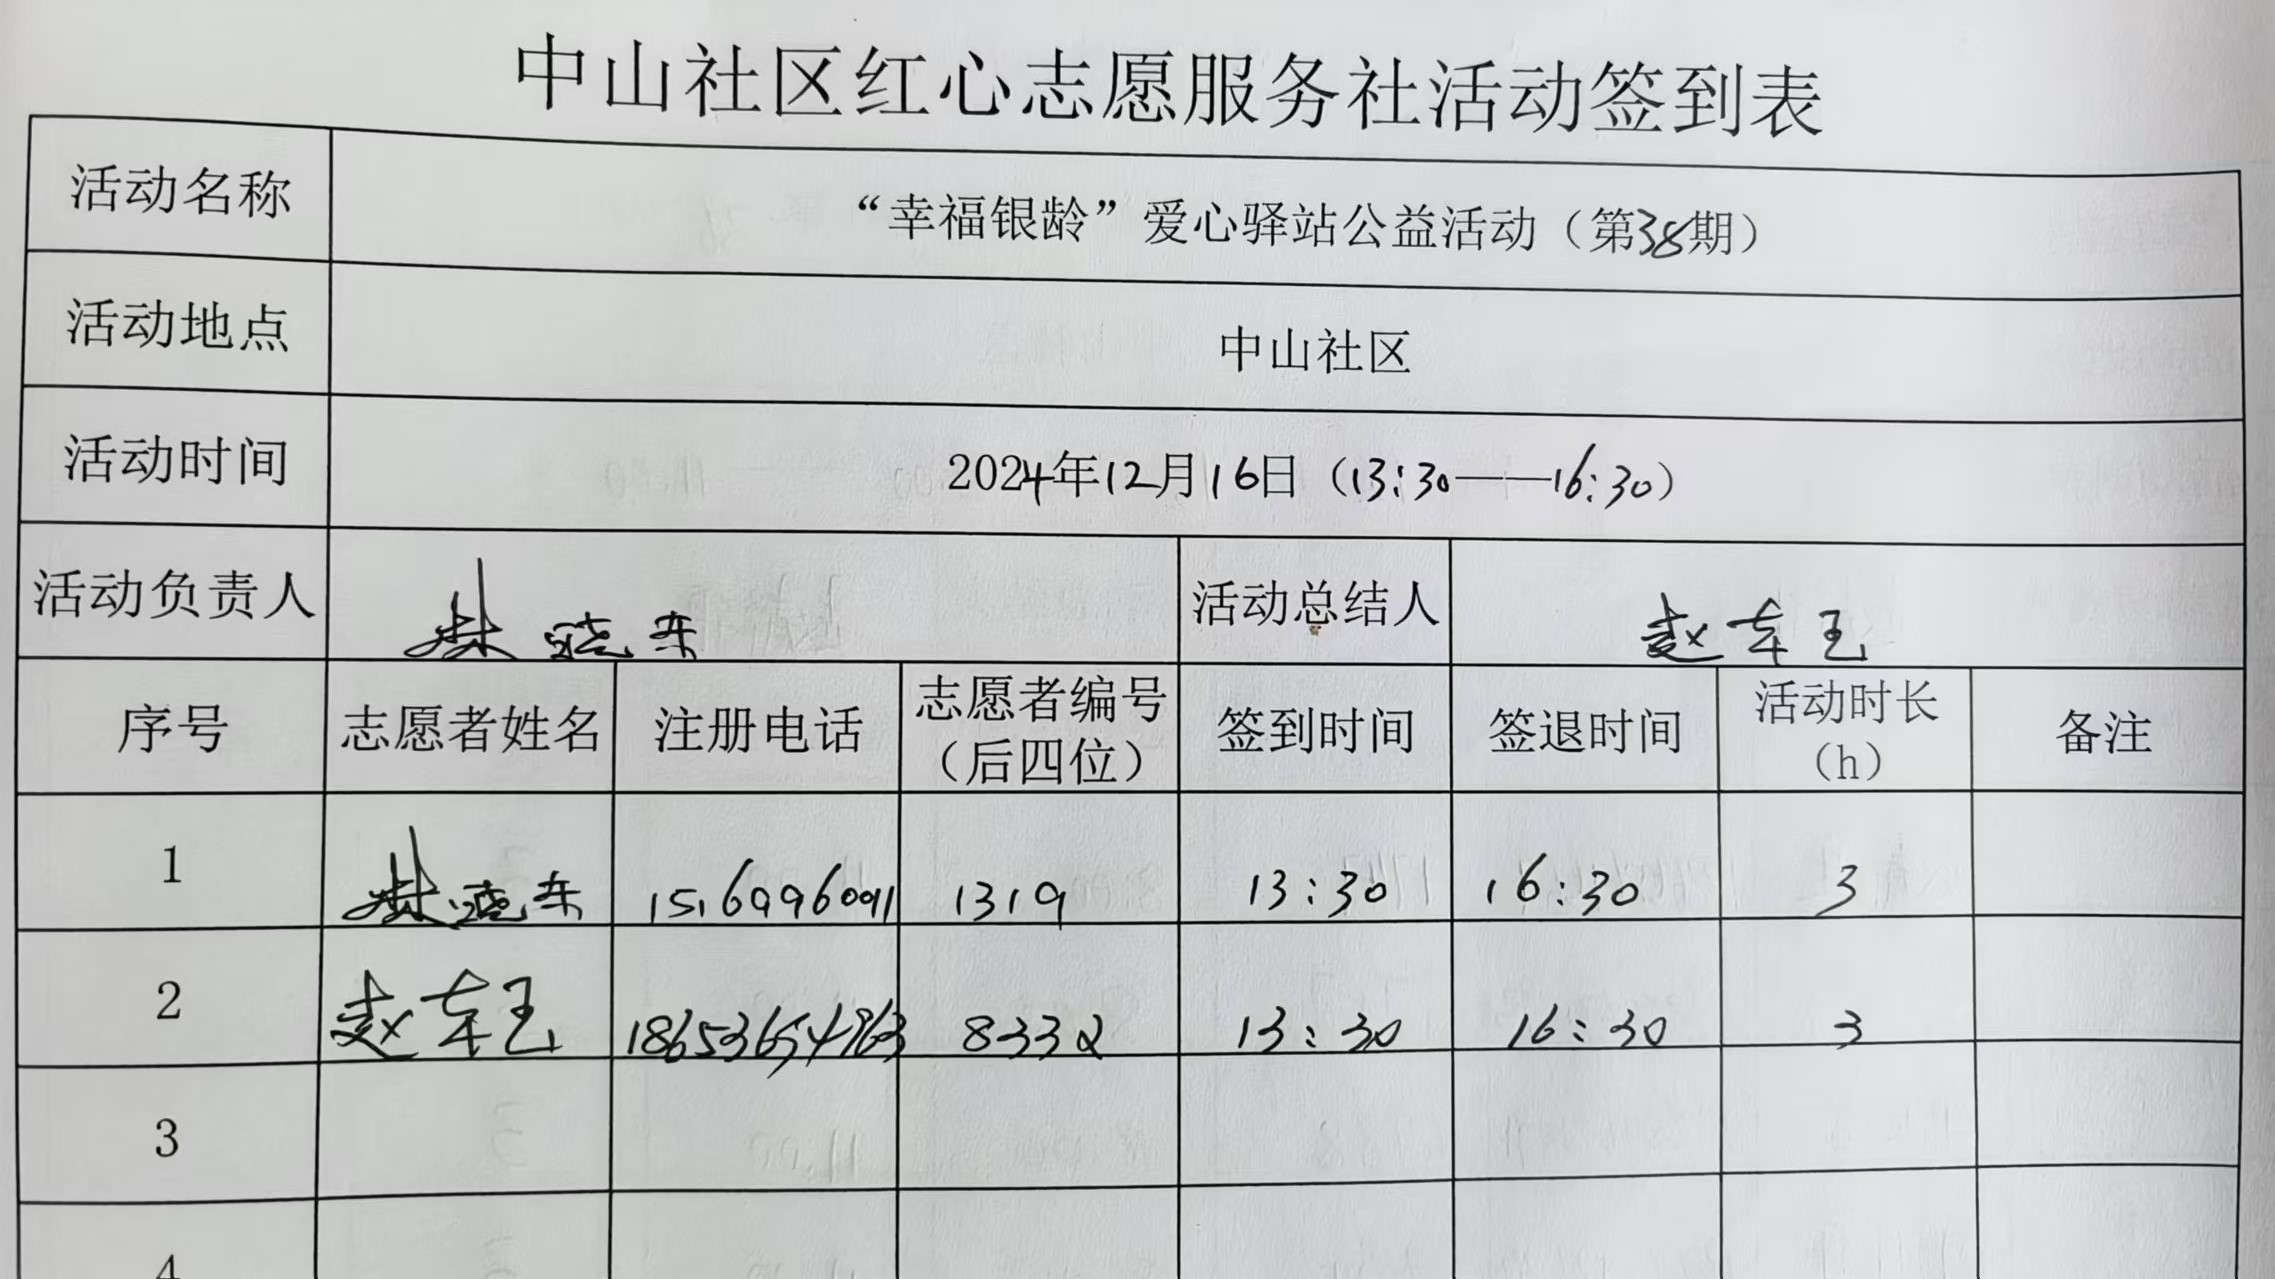 中山社区红心志愿服务社活动签到表
活动名称 “幸福银龄”爱心驿站公益活动（第38期）
活动地点 中山社区
活动时间 2024年12月16日（13:30——16:30）
活动负责人 林晓东 活动总结人 赵东玉
序号 志愿者姓名 注册电话 志愿者编号（后四位） 签到时间 签退时间 活动时长（h） 备注
1 林晓东 15169960911 1319 13:30 16:30 3
2 赵东玉 18653654963 8332 13:30 16:30 3
3
4